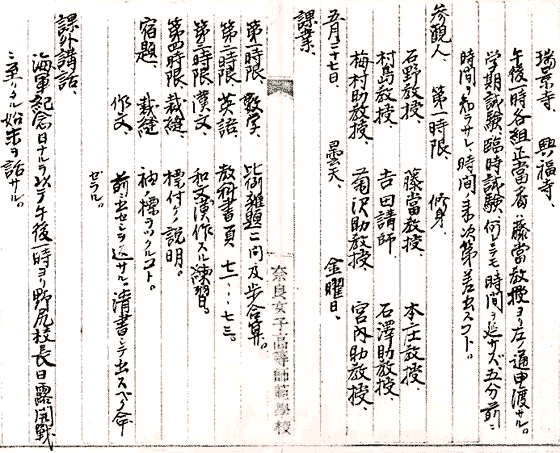 瑞景寺、興福寺、
午後一時各組正當番、藤當教授ヨリ左ノ通申渡サル。
学期試験、臨時試験、何レニテモ時間ヲ延サズ、五分前ニ
時間ヲ知ラサレ、時間ノ来次第差出スコト。
参観人、第一時限 修身、
石野教授、藤當教授、本庄教授、
村島教授、吉田講師、石澤助教授、
梅村助教授、菊沢助教授、宮内助教授、
五月二十七日、曇天、金曜日、
課業、
奈良女子高等師範學校
第一時限、数学、比例雑題二問及歩合算。
第二時限、英語、教科書頁七一‥七三。
第三時限、漢文、和文漢作スル練習。
第四時限、裁縫、標付ケノ説明。
宿題、裁縫、袖ノ標ヲツクルコト。
作文、前ニ出セシヲ返サル。清書シテ出スベク命
ゼラル。
課外講話、
海軍紀念日ナルヲ以テ午後一時ヨリ野尻校長日露開戦
ニ至リタル始末ヲ話サル。